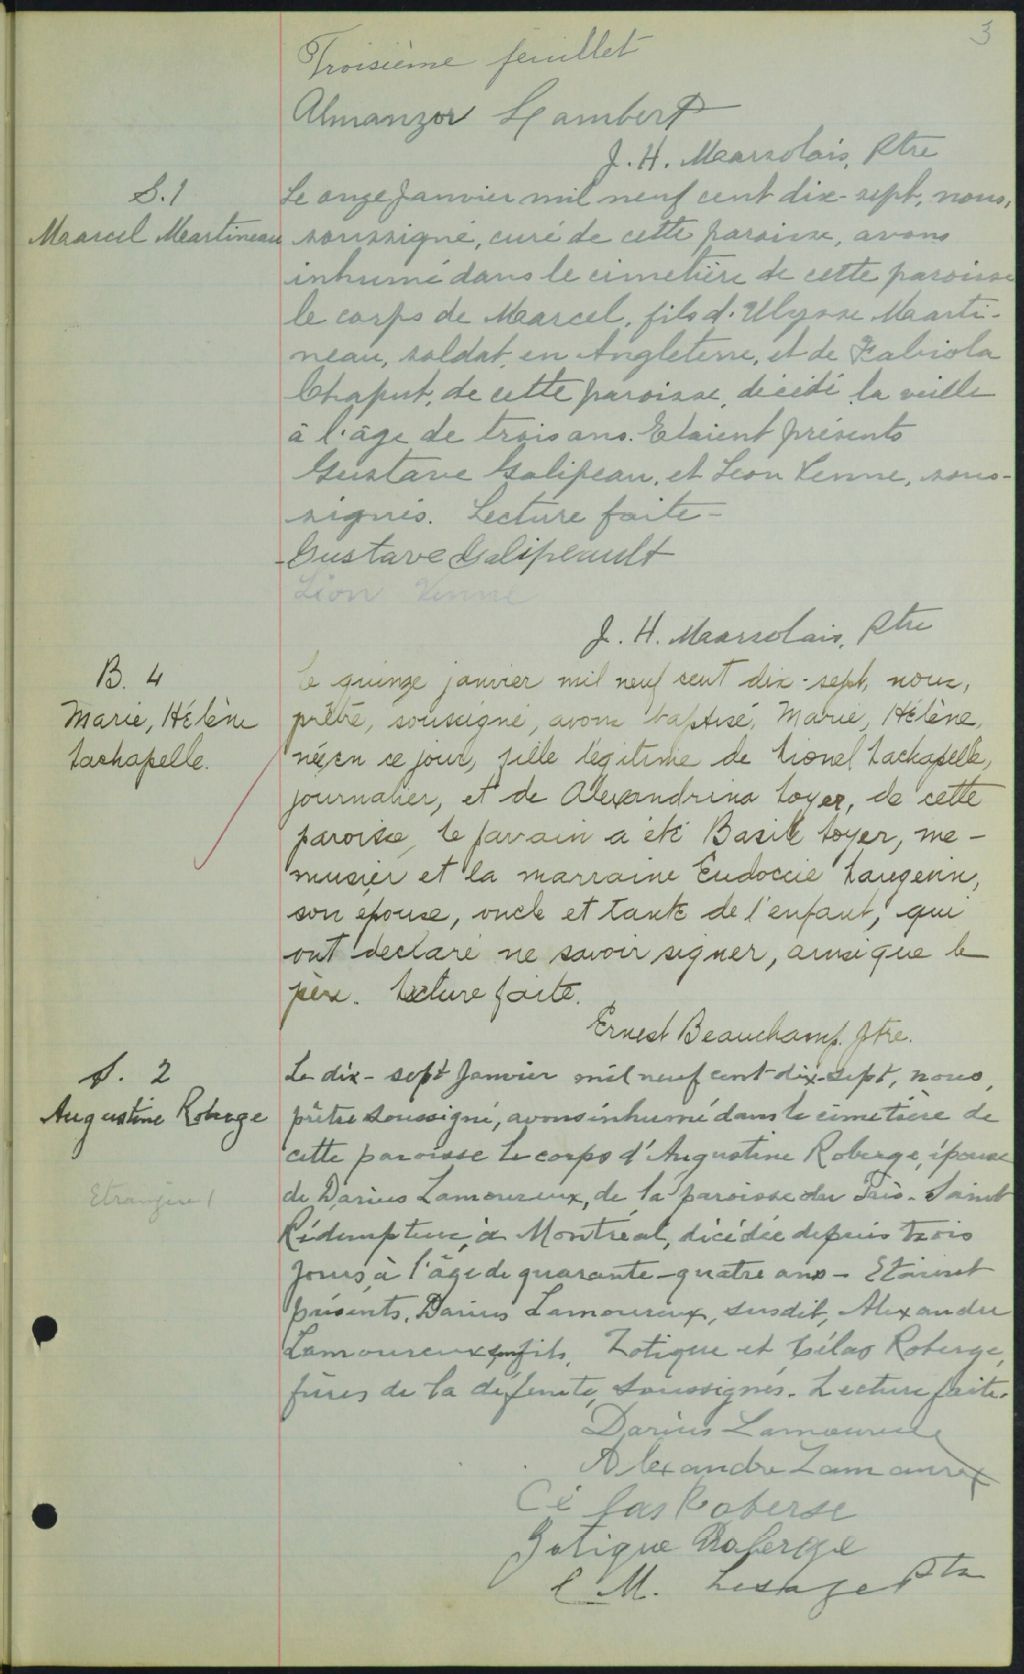 3
Troisième feuillet
Almanzor Lambert
J. H. Marsolais, Ptre
S. 1
Marcel Martineau
Le onze Janvier mil neuf cent dix-sept, nous,
soussigné, curé de cette paroisse, avons
inhumé dans le cimetière de cette paroisse
le corps de Marcel, fils d'Ulysse Marti-
neau, soldat, en Angleterre, et de Fabiola
Chaput, de cette paroisse, décédé la veille
à l'âge de trois ans. Etaient présents
Gustave Galipeau, et Leon Venne, sous-
signés. Lecture faite -
Gustave Galipeault
Léon Venne
J. H. Marsolais, Ptre
B. 4
Marie, Hélène
Lachapelle.
Le quinze janvier mil neuf cent dix-sept, nous,
prêtre, soussigné, avons baptisé, Marie, Hélène,
née, en ce jour, fille légitime de Lionel Lachapelle,
journalier, et de Alexandrina Loyer, de cette
paroisse, le parrain a été Basile Loyer, me-
nusier et la marraine Eudoccie Langevin,
son épouse, oncle et tante de l'enfant, qui
ont déclaré ne savoir signer, ainsi que le
père. Lecture faite.
Ernest Beauchamp, ptre.
S. 2
Augustine Roberge
Etrangère 1
Le dix-sept Janvier mil neuf cent dix-sept, nous,
prêtre soussigné, avons inhumé dans le cimetière de
cette paroisse le corps d'Augustine Roberge, épouse
de Darius Lamoureux, de la paroisse du Très-Saint
Rédempteur, à Montréal, décédée depuis trois
jours, à l'âge de quarante-quatre ans - Etaient
présents, Darius Lamoureux, susdit, Alexandre
Lamoureux, son fils, Zotique et Célas Roberge,
frères de la défunte, soussignés. Lecture faite.
Darius Lamoureux
Alexandre Lamourex
Célas Roberge
Zotique Roberge
C. M. Lesage Ptre